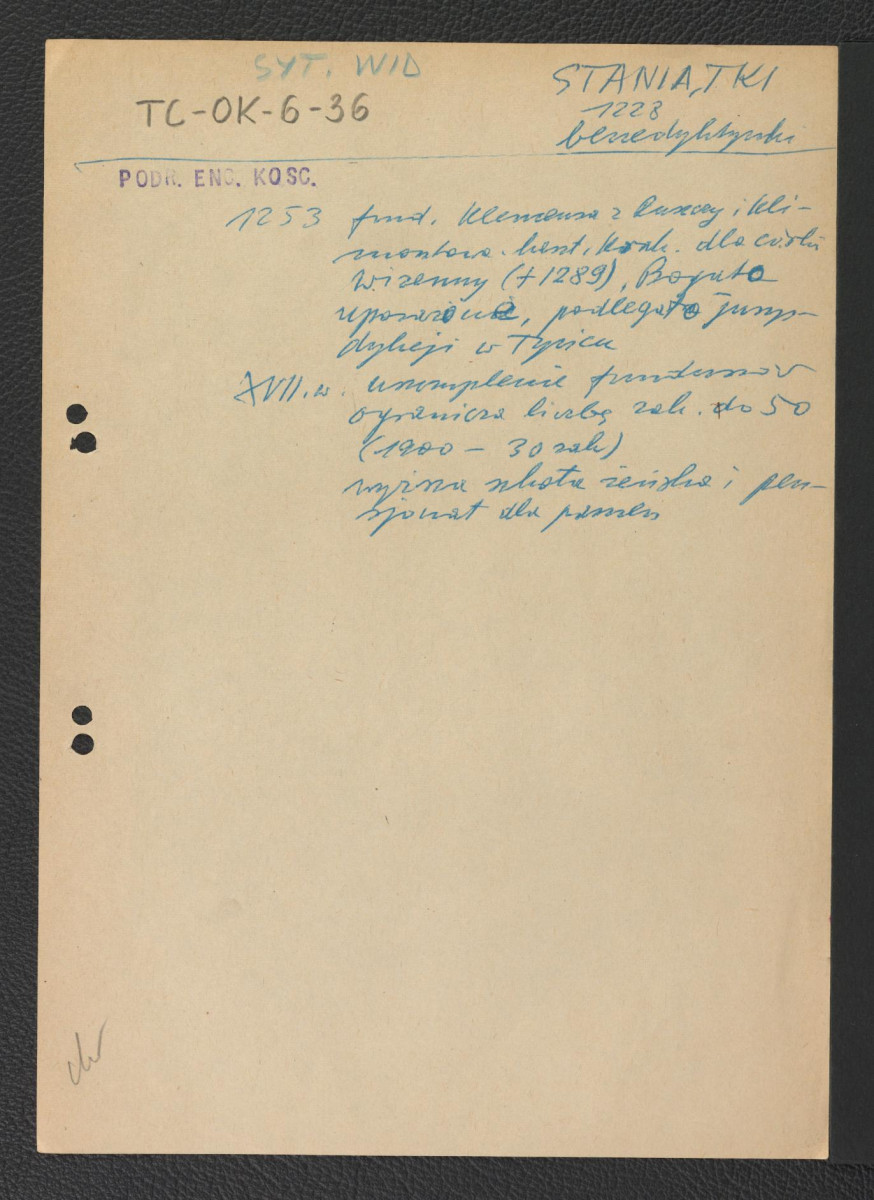 SYT. WID
STANIĄTKI
TC-OK-6-36
1223
benedyktynki
PODR. ENC. KOSC.
1253 fund. Klemensa z Ruszczy i Kli-
montowa kaszt. Krak. dla córki
Wizenny (+1289), Bogato
uposażone, podlegało jurys-
dykcji w Tyńcu
XVII. w. uszczuplenie funduszów
ogranicza liczbę zak. do 50
(1900 - 30 zak)
wyższa szkoła żeńska i pen-
sjonat dla panien